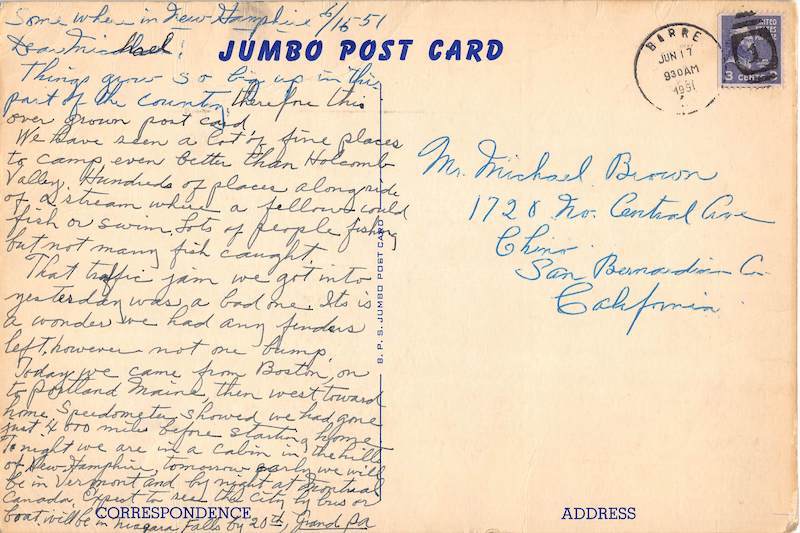 Some where in New Hamphire 6/16 51
Dear Michael!
JUMBO POST CARD
Things grow so big up in this
part of the country, therefore this
over grown post card
We have seen a lot of fine places
to camp even better than Holcomb
Valley. Hundreds of places alongside
of a stream where a fellow could
fish or swim, lots of people fishing
but not many fish caught.
That traffic jam we got into
yesterday was a bad one. Its is
a wonder we had any finders
left, however not one bump.
Today we came from Boston, on
to Portland Maine, then west toward
home. Speedometer showed we had gone
just 4000 miles before starting home
Tonight we are in a cabin in the hills
of New Hamphire, tomorrow early we will
be in Vermont and by night at Montreal
Canada, Expect to see the City by bus or
boat, will be in Niagara Falls by 20th, Grand pa
CORRESPONDENCE
S. P. S. JUMBO POST CARD
BARRE
JUN 17
930 AM
1951
UNITED
STATES
3 CENTS 3
Mr. Michael Brown
1720 No. Central Ave
Chino
San Bernardino Co.
California
ADDRESS